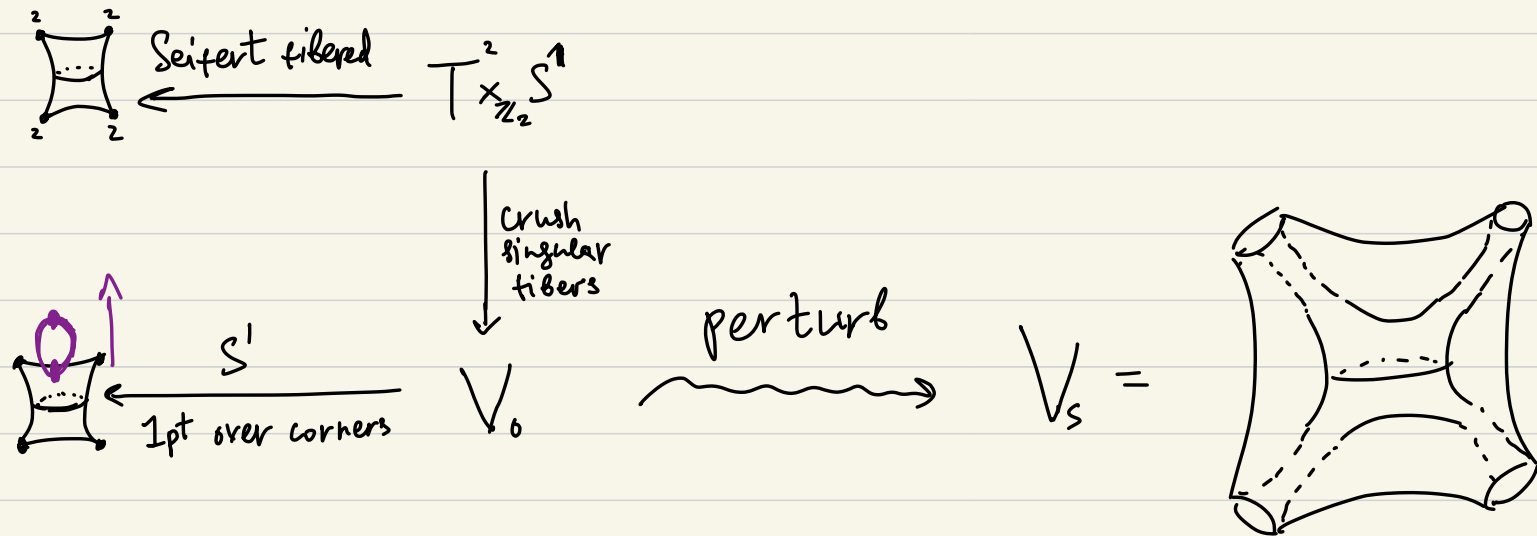 2 2
Seifert fibered
T² ×_ℤ₂ S¹
2 2
crush
singular
fibers
S¹
1pt over corners
V₀
perturb
Vₛ =